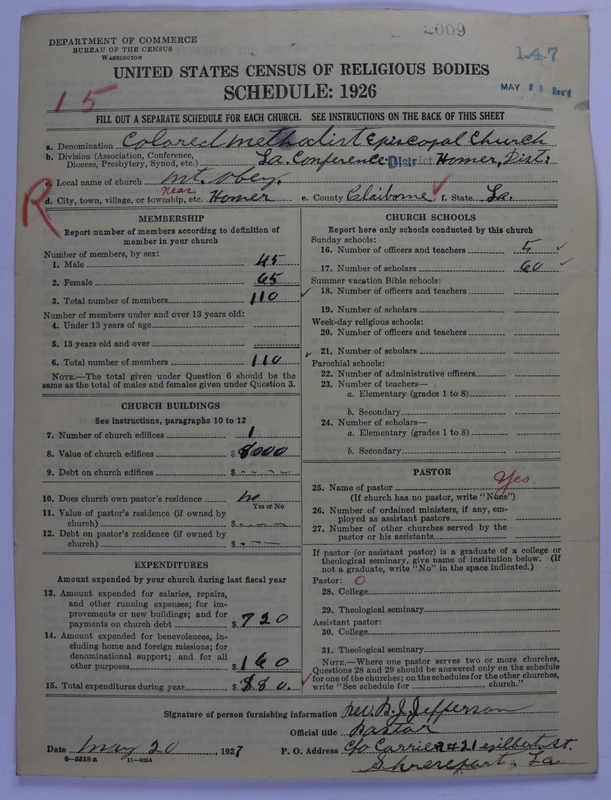 2009
DEPARTMENT OF COMMERCE
BUREAU OF THE CENSUS
WASHINGTON
147
UNITED STATES CENSUS OF RELIGIOUS BODIES
SCHEDULE: 1926
MAY 23 Rec'd
15
FILL OUT A SEPARATE SCHEDULE FOR EACH CHURCH. SEE INSTRUCTIONS ON THE BACK OF THIS SHEET
a. Denomination Colored Methodist Episcopal Church
b. Division (Association, Conference, Diocese, Presbytery, Synod, etc.) La. Conference District Homer, Dist.
c. Local name of church Mt. Obey.
R
d. City, town, village, or township, etc. Near Homer e. County Claiborne f. State La.
MEMBERSHIP
Report number of members according to definition of
member in your church
Number of members, by sex:
1. Male 45
2. Female 65
3. Total number of members 110
Number of members under and over 13 years old:
4. Under 13 years of age
5. 13 years old and over
6. Total number of members 110
NOTE.—The total given under Question 6 should be the
same as the total of males and females given under Question 3.
CHURCH BUILDINGS
See instructions, paragraphs 10 to 12
7. Number of church edifices 1
8. Value of church edifices $ 8000
9. Debt on church edifices $
10. Does church own pastor's residence no
Yes or No
11. Value of pastor's residence (if owned by
church) $
12. Debt on pastor's residence (if owned by
church) $
EXPENDITURES
Amount expended by your church during last fiscal year
13. Amount expended for salaries, repairs,
and other running expenses; for im-
provements or new buildings; and for
payments on church debt $ 720
14. Amount expended for benevolences, in-
cluding home and foreign missions; for
denominational support; and for all
other purposes $ 160
15. Total expenditures during year $ 880.
CHURCH SCHOOLS
Report here only schools conducted by this church
Sunday schools:
16. Number of officers and teachers 5
17. Number of scholars 60
Summer vacation Bible schools:
18. Number of officers and teachers
19. Number of scholars
Week-day religious schools:
20. Number of officers and teachers
21. Number of scholars
Parochial schools:
22. Number of administrative officers
23. Number of teachers—
a. Elementary (grades 1 to 8)
b. Secondary
24. Number of scholars—
a. Elementary (grades 1 to 8)
b. Secondary
PASTOR
25. Name of pastor Yes.
(If church has no pastor, write "None")
26. Number of ordained ministers, if any, em-
ployed as assistant pastors
27. Number of other churches served by the
pastor or his assistants
If pastor (or assistant pastor) is a graduate of a college or
theological seminary, give name of institution below. (If
not a graduate, write "No" in the space indicated.)
Pastor: O
28. College
29. Theological seminary
Assistant pastor:
30. College
31. Theological seminary
NOTE.—Where one pastor serves two or more churches,
Questions 28 and 29 should be answered only on the schedule
for one of the churches; on the schedules for the other churches,
write "See schedule for church."
Signature of person furnishing information Rev. B. J. Jefferson
Official title Pastor
Date May 20, 1927 P. O. Address C/o Carrier #21 Gilbert St.
8—5518 a 11—9254 Shreveport, La